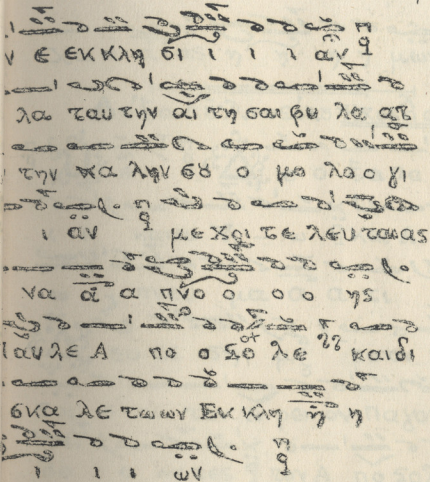 ν ε εκ κλη σι ι ι ι αν
λα ταυ την αι τη σαι βυ λα ατ
την κα λην σου ο μο λο ο γι
ι αν με χρι τε λευ ταιας
να α α πνο ο ο ο ης
Παυ λε Α πο ο στο λε και δι
σκα λε των ων Εκ κλη η η
ι ι ι ων